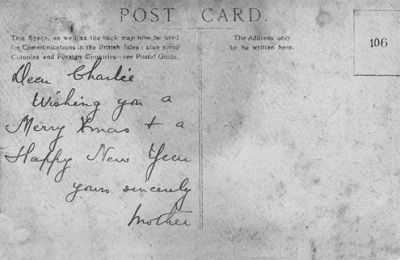 POST CARD.
This Space, as well as the back may now be used
for Communications in the British Isles: also some
Colonies and Foreign Countries—see Postal Guide.
The Address only
to be written here.
106
Dear Charlie
Wishing you a
Merry Xmas + a
Happy New Year
yours sincerely
Mother